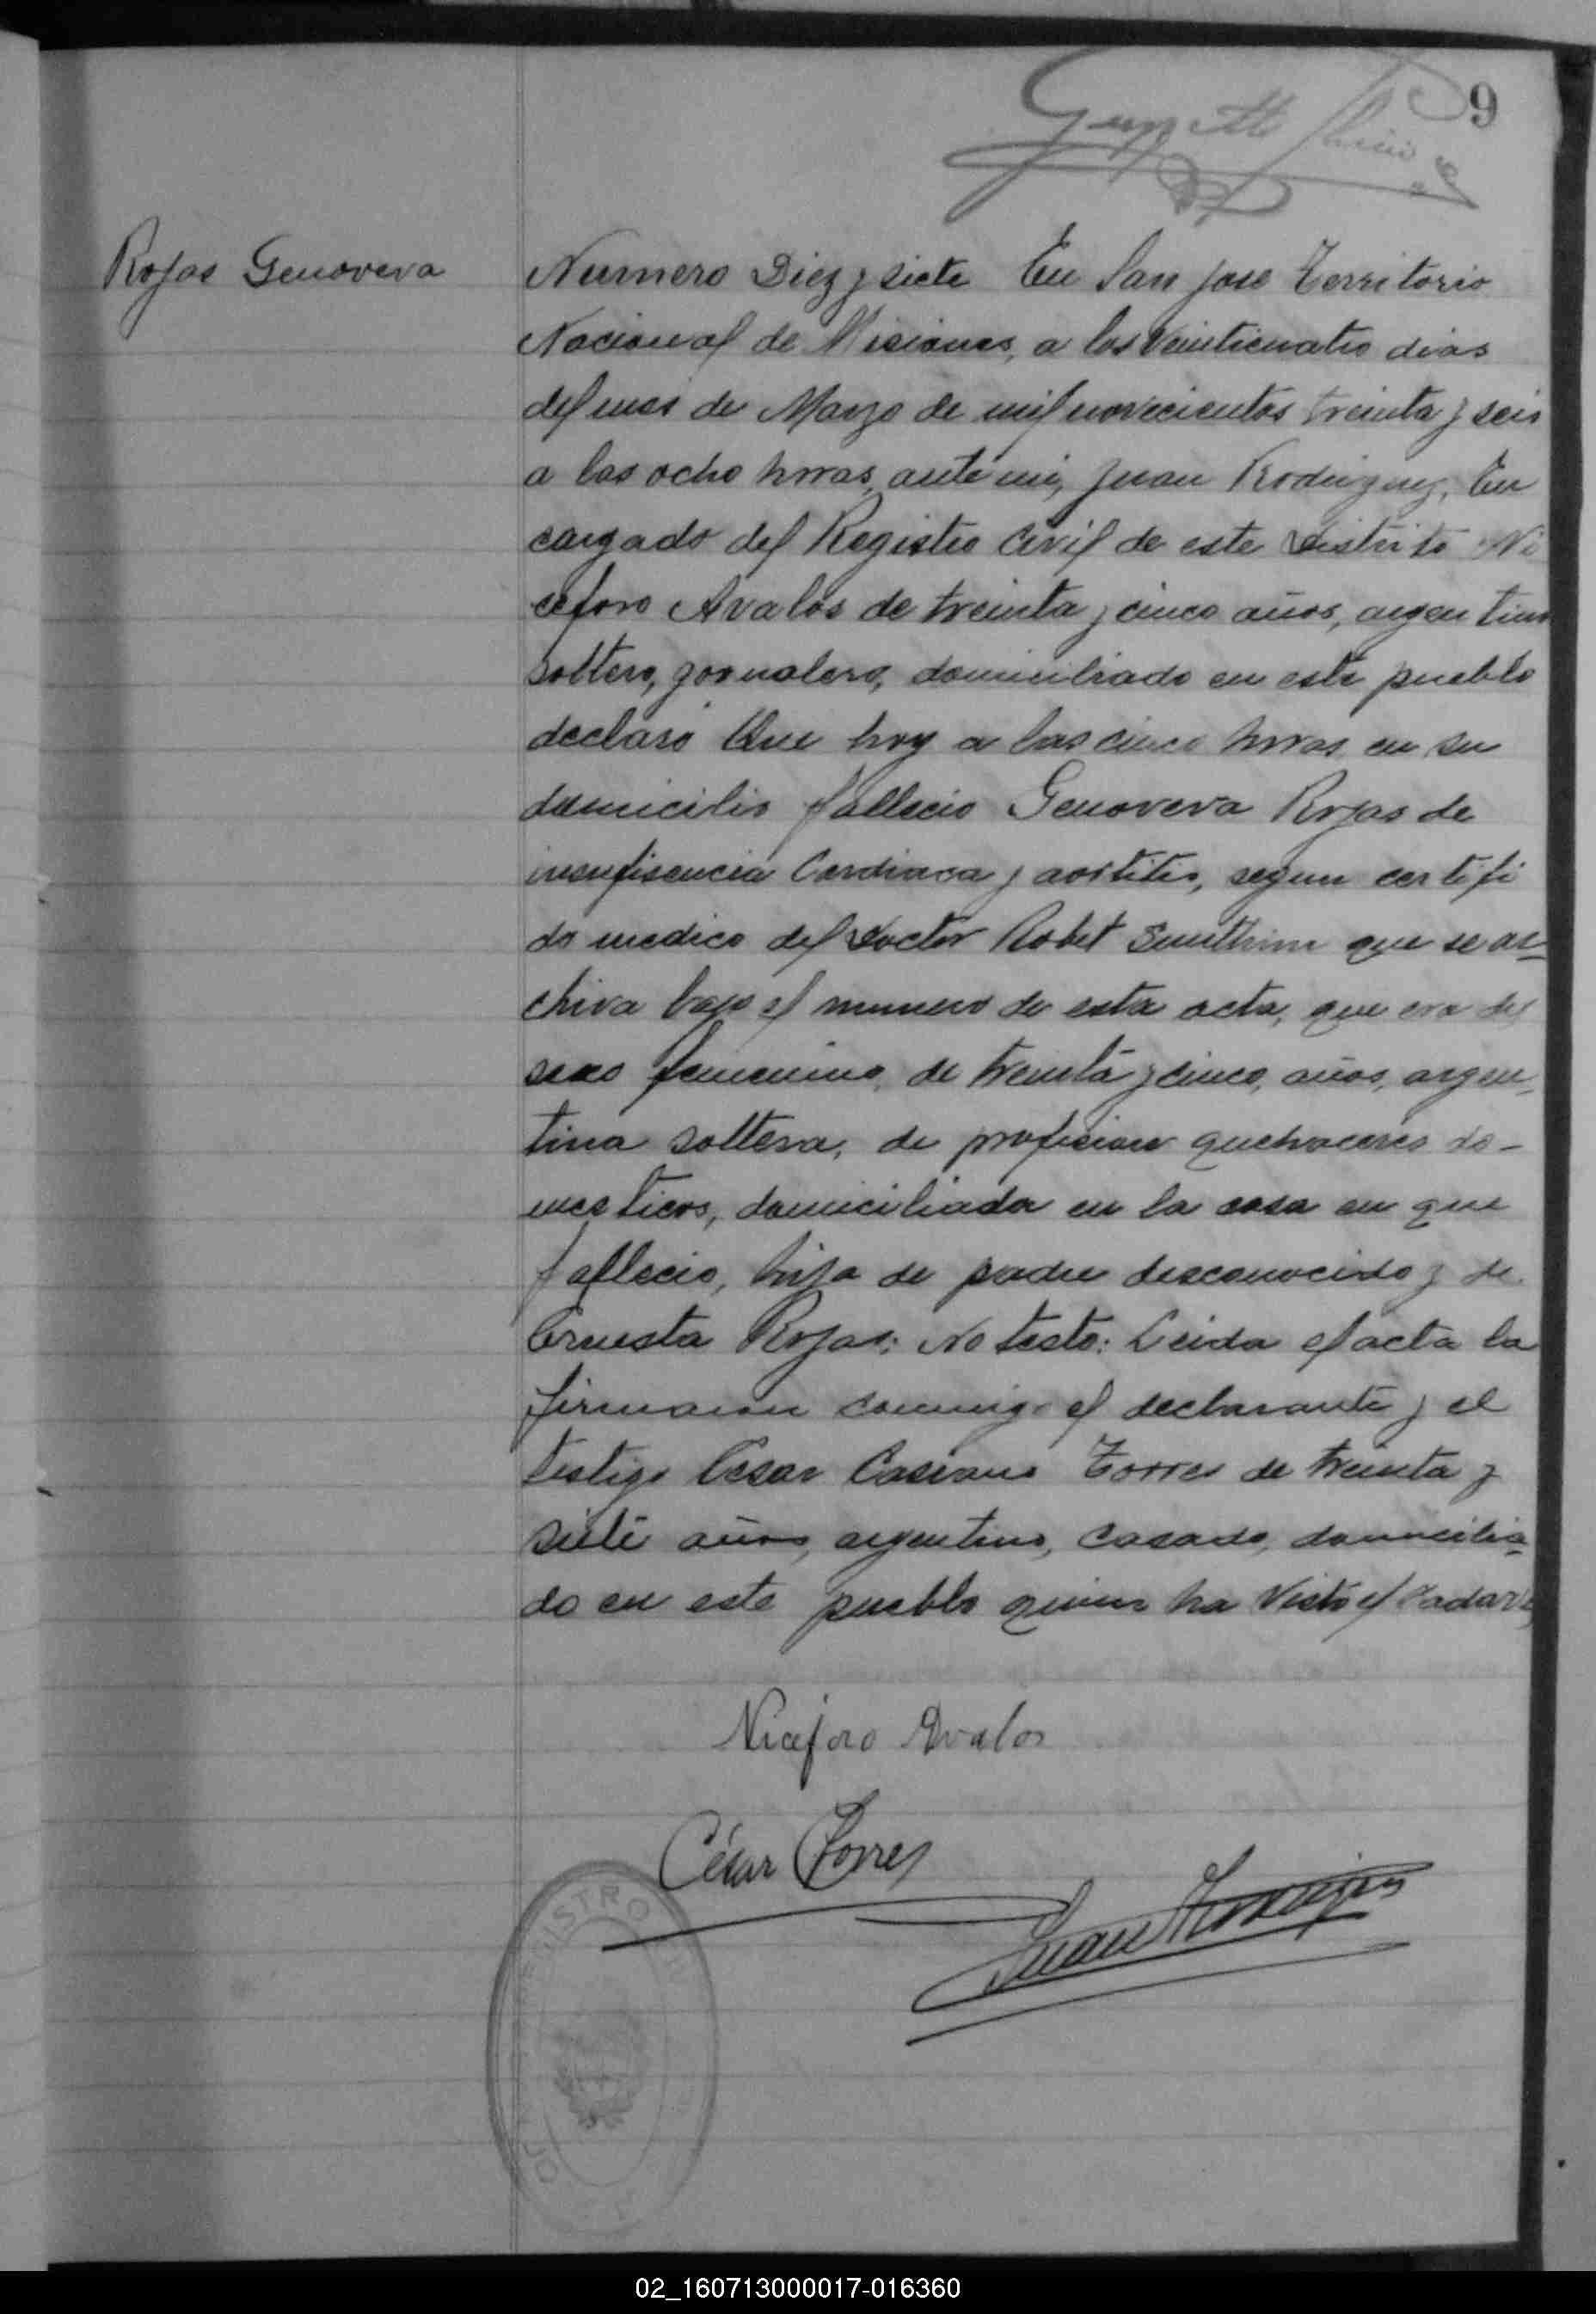 9
Rojas Genoveva
Numero Diez y siete En San Jose Territorio
Nacional de Misiones, a los Veinticuatro dias
del mes de Marzo de mil novecientos treinta y seis
a las ocho horas, ante mi, Juan Rodriguez, En
cargado del Registro Civil de este Distrito Ni
ceforo Avalos de treinta y cinco años, argentino
soltero, jornalero, domiciliado en este pueblo
declaró Que hoy a las cinco horas en su
domicilio fallecio Genoveva Rojas de
insufisencia Cardiaca y aortitis, segun certifi
do medico del Doctor Robet que se ar-
chiva bajo el numero de esta acta, que era del
sexo femenino, de treinta y cinco, años, argen-
tina soltera, de profesion quehaceres do-
mesticos, domiciliada en la casa en que
fallecio, hija de padre desconocido y de
Ernesta Rojas: No testo: Leida el acta la
firmaron conmigo el declarante y el
testigo Cesar Casiano Torres de treinta y
siete años, argentino, casado, domicilia-
do en este pueblo quien ha Visto el Cadaver,
Niceforo Avalos
César Torres
Juan Rodriguez
REGISTRO
02_160713000017-016360